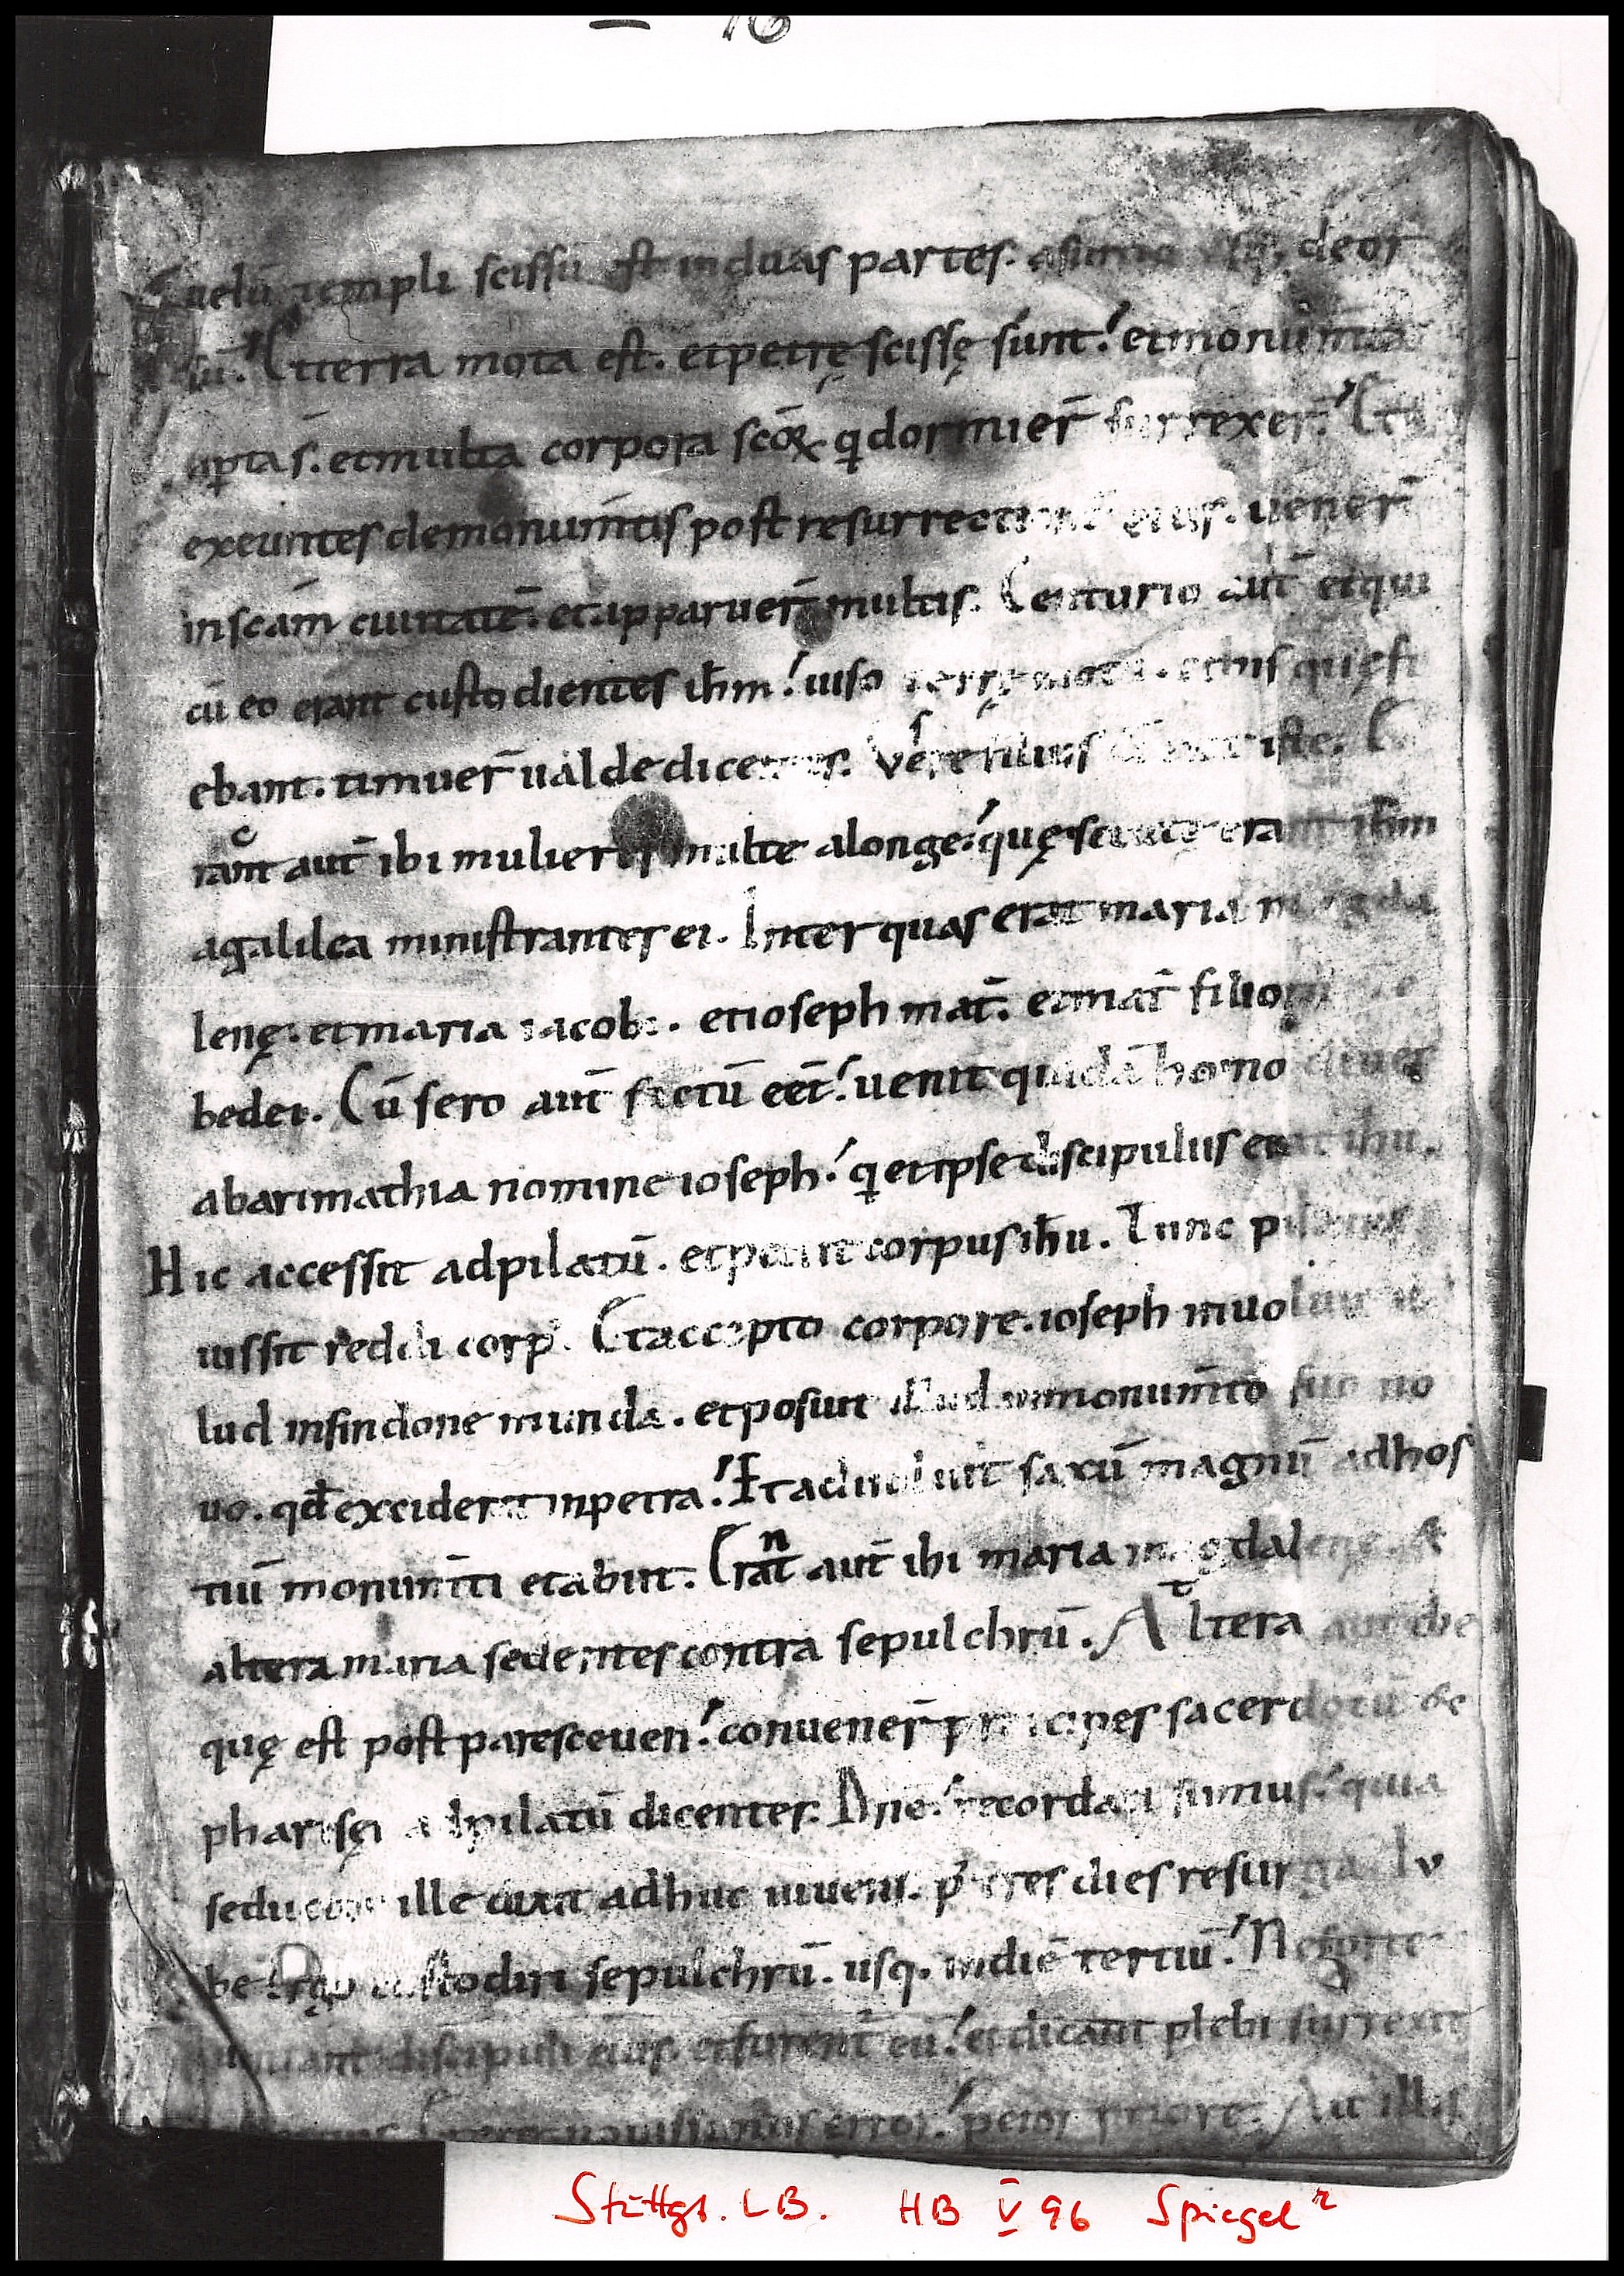 16
uelū templi scissū est induas partes. asumo usq; deor
sū. Et terra mota est. et petrę scissę sunt. et monum̄ta
apta s̄. et multa corpora scōꝝ q̇ dormier̄ surrexer̄. Et
exeuntes demonum̄tis post resurrectionē eius. uener̄
in scām ciuitatē. et apparuer̄ multis. Centurio aut̄ et qui
cū eo erant custodientes ih̄m. uiso terrę motu. et his quę fi
ebant. timuer̄ ualde dicentes. Vere filius erat iste. E
rant aut̄ ibi mulieres multe alonge. quę secutę erant ih̄m
agalilea ministrantes ei. Inter quas erat maria magda
lenę. et maria iacobi. et ioseph mat̄. et mat̄ filioꝝ
bedei. Cū sero aut̄ factū eēt. uenit quidā homo diues
abarimathia nomine ioseph. q̇ et ipse discipulus erat ih̄u.
Hic accessit adpilatū. et petiit corpus ih̄u. Tunc pilatus
iussit reddi corp᾿. Et accepto corpore. ioseph inuoluit il
lud insindone munda. et posuit illud inmonum̄to suo no
uo. qd̄ exciderat inpetra. Et aduoluit saxū magnū adhos
tiū monum̄ti et abiit. Erant aut̄ ibi maria magdalenę et
altera maria sedentes contra sepulchrū. Altera aut̄ die
quę est post paresceuen. conuener̄ principes sacerdotū &
pharisęi adpilatū dicentes. Dn̄e. recordati sumus. quia
seductor ille dixit adhuc uiuens. p᾿ tres dies resurgā. Iu
be ergo custodiri sepulchrū. usq; indiē tertiū. Ne forte
ueniant discipuli eius. et furent̄ eū. et dicant plebi surrexit
nouissimus error. peior priore. Ait illis
Stuttgt. LB. HB V 96 Spiegel r